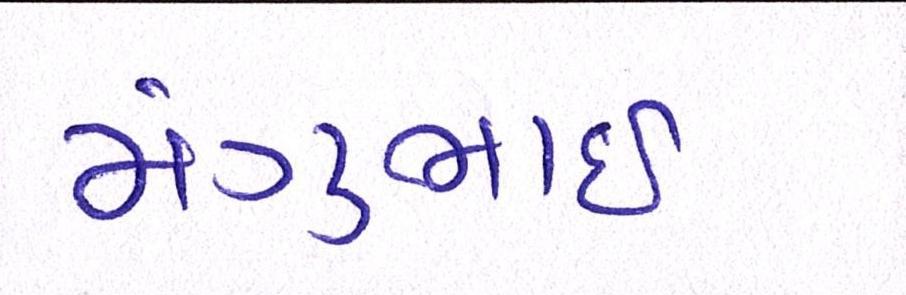 મંગુભાઈ